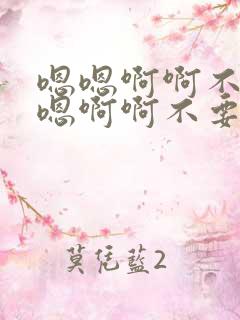 嗯嗯啊啊不
嗯啊啊不要
莫凭蓝2